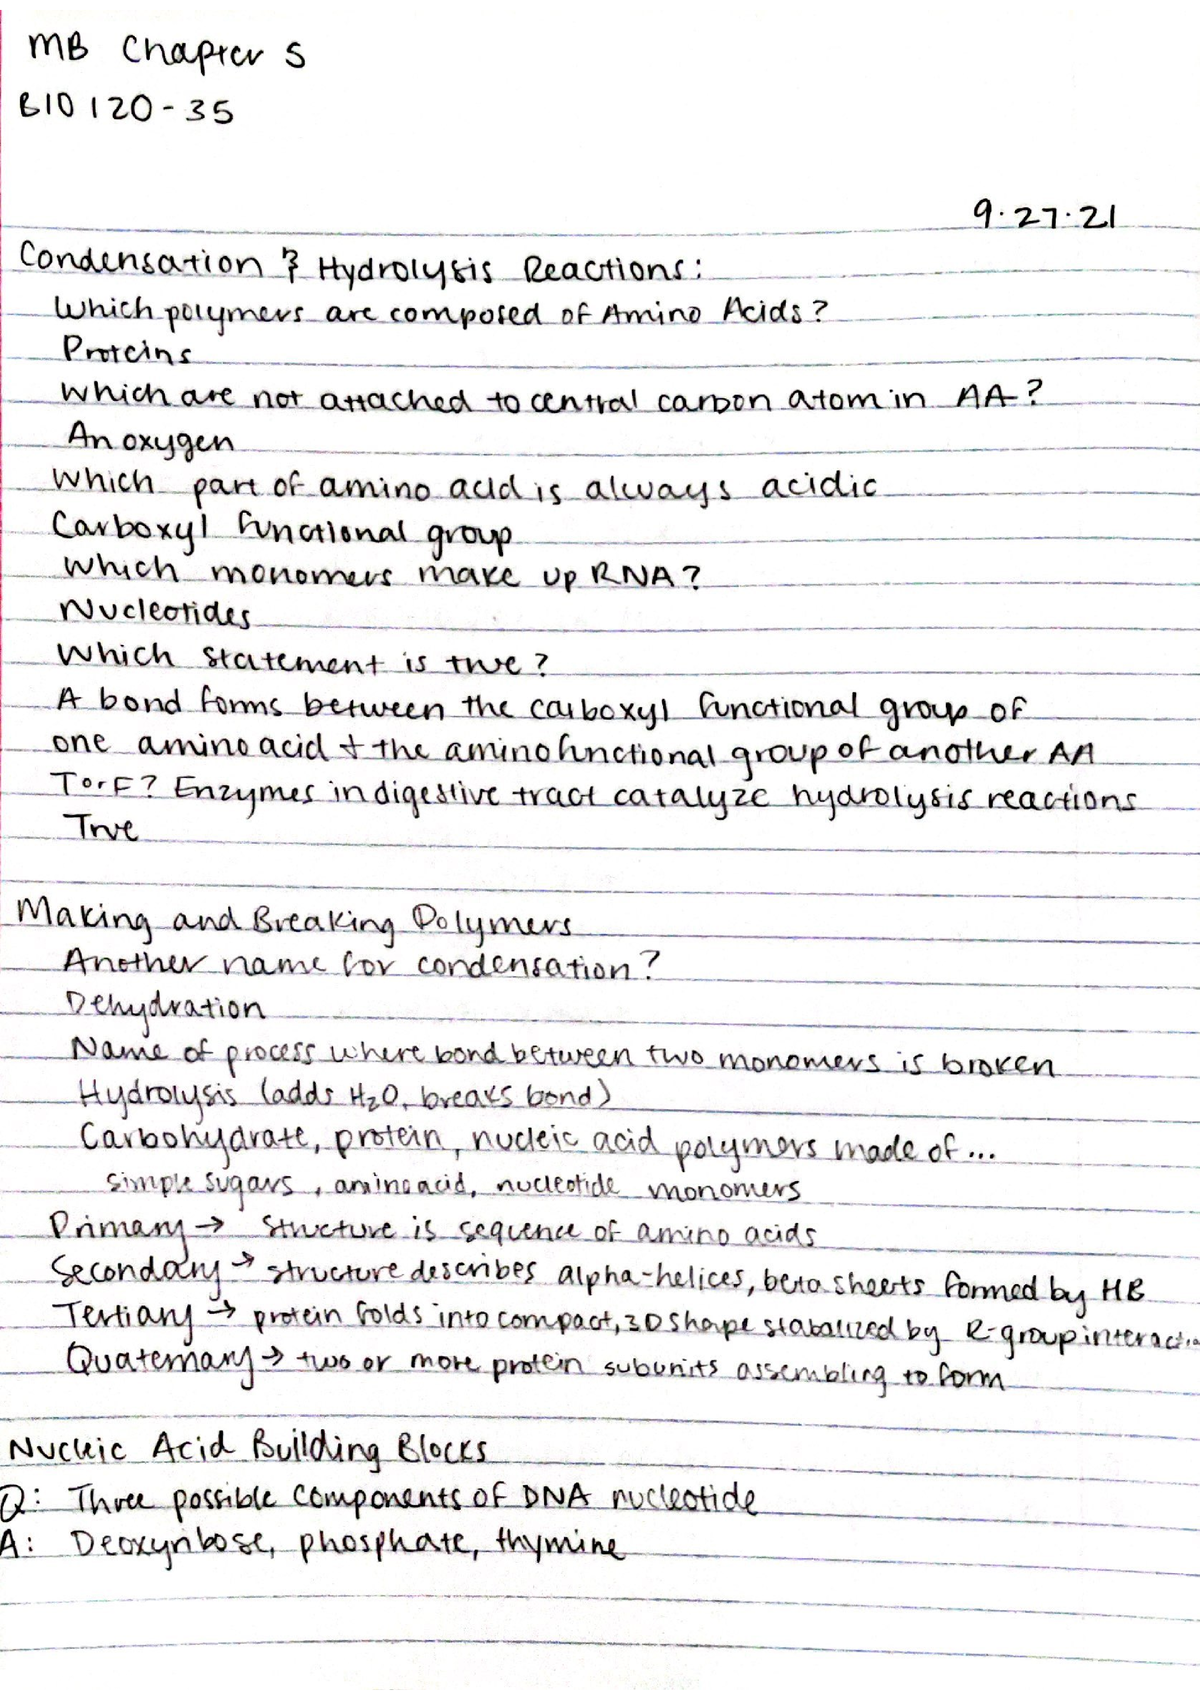 MB Chapter 5
BIO 120-35
9.27.21
Condensation & Hydrolysis Reactions:
Which polymers are composed of Amino Acids?
Proteins
Which are not attached to central carbon atom in AA?
An oxygen
Which part of amino acid is always acidic
Carboxyl functional group
Which monomers make up RNA?
Nucleotides
Which statement is true?
A bond forms between the carboxyl functional group of
one amino acid + the amino functional group of another AA
T or F? Enzymes in digestive tract catalyze hydrolysis reactions
True
Making and Breaking Polymers
Another name for condensation?
Dehydration
Name of process where bond between two monomers is broken
Hydrolysis (adds H₂O, breaks bond)
Carbohydrate, protein, nucleic acid polymers made of...
simple sugars, amino acid, nucleotide monomers
Primary → structure is sequence of amino acids
Secondary → structure describes alpha-helices, beta sheets formed by HB
Tertiary → protein folds into compact, 3D shape stabalized by R-group interactio
Quaternary → two or more protein subunits assembling to form
Nucleic Acid Building Blocks
Q: Three possible components of DNA nucleotide
A: Deoxyribose, phosphate, thymine